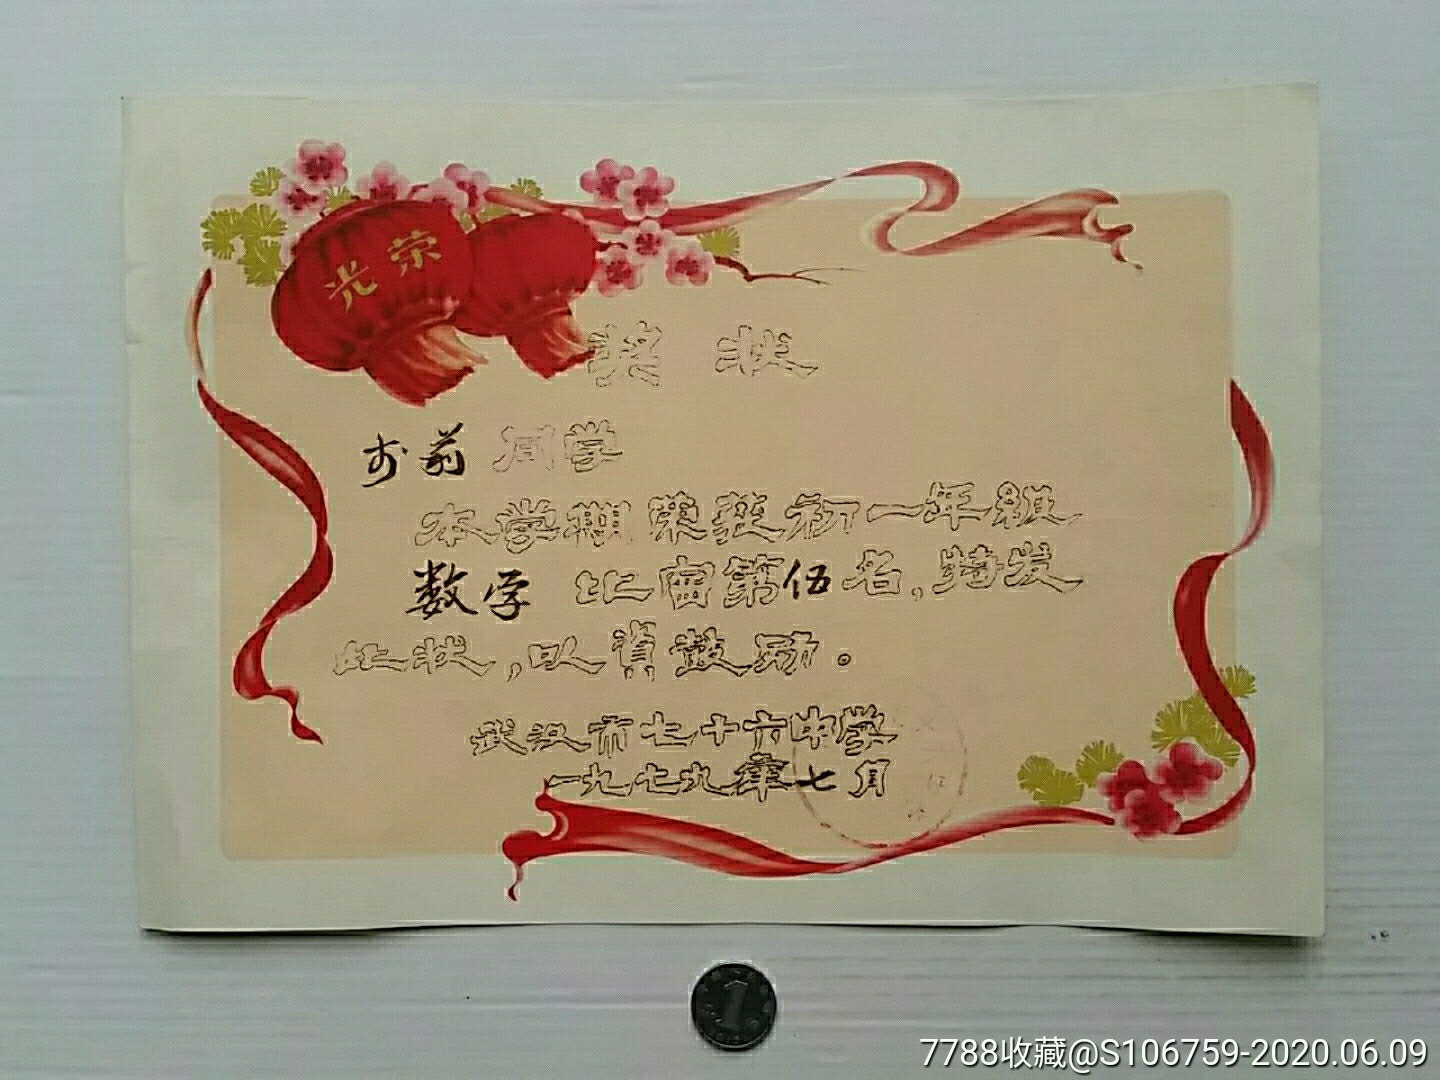 光荣
奖状
同学
本学期荣获初一年级
数学 比赛第伍名,特发
此状,以资鼓励。
武汉市七十六中学
一九七九年七月
1
7788收藏@S106759-2020.06.09